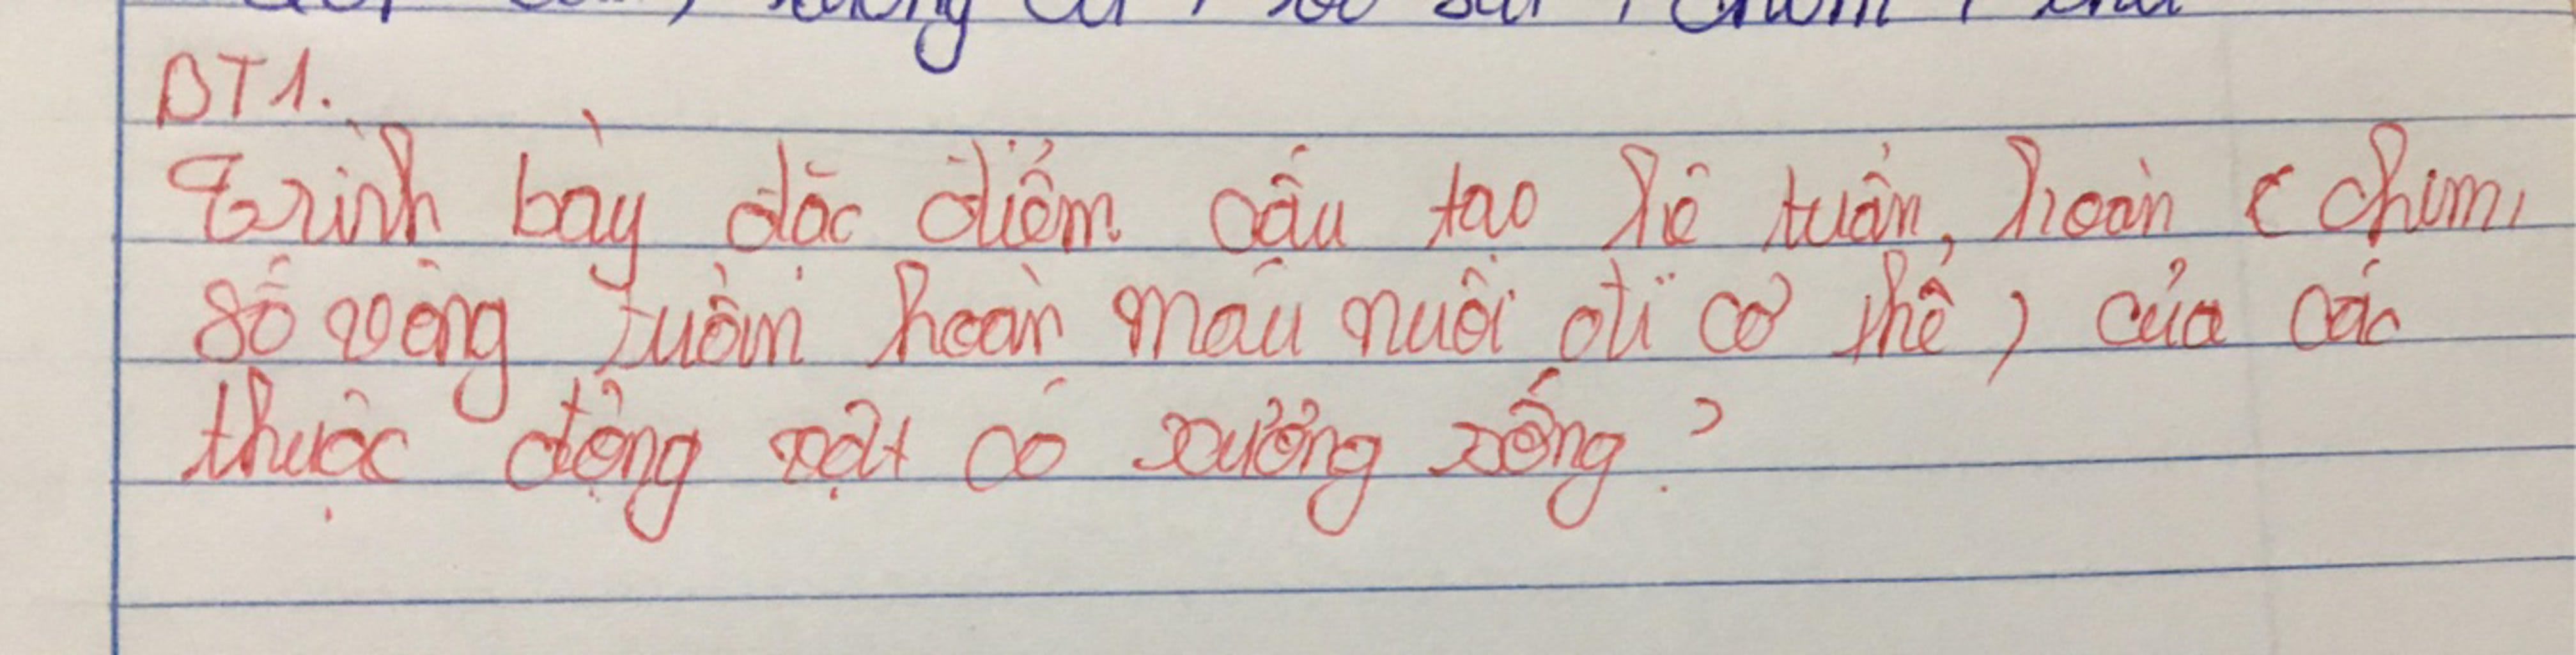 BT1.
Trình bày đặc điểm cấu tạo hệ tuần hoàn (chim,
số vòng tuần hoàn máu nuôi đi cơ thể) của các
thuộc động vật có xương sống?